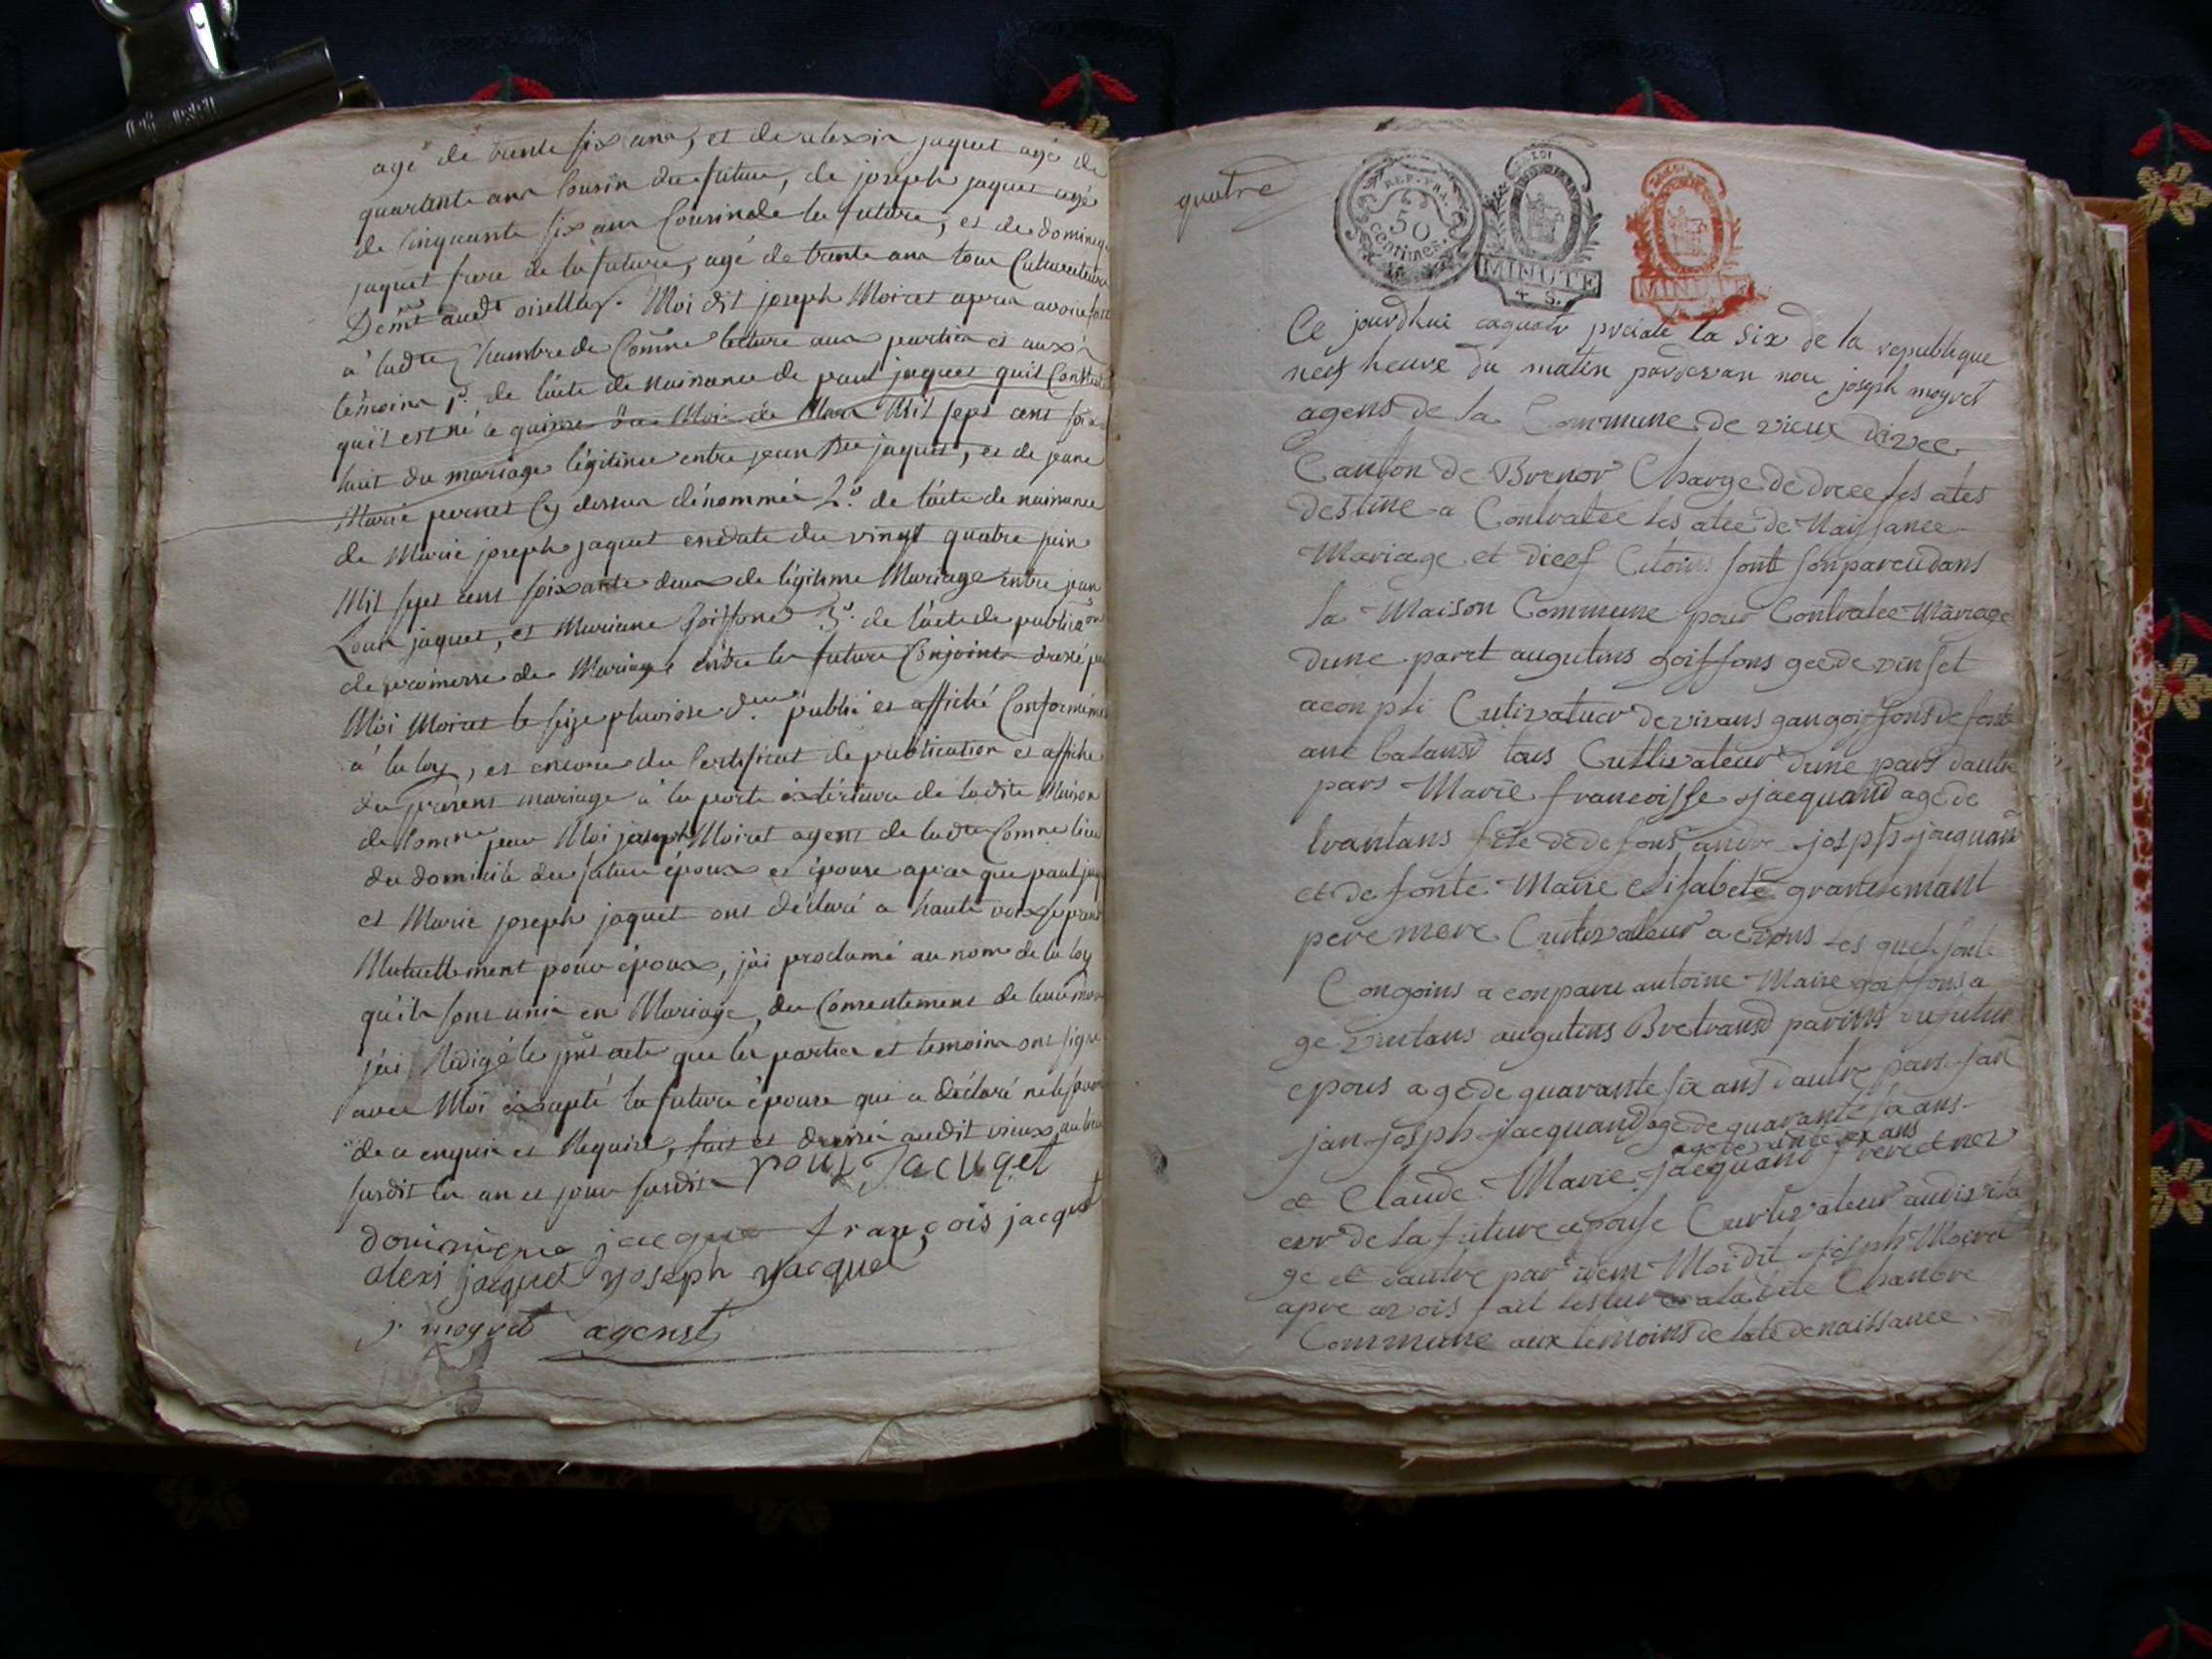 agé de trente six ans, et de alexis jaquet agé de
quarente ans Cousin du futur, de joseph jaquet agé
de Cinquante six ans Cousin de la future, et de dominique
jaquet frere de la future, agé de trente ans tous Cultivateurs
Demt audt oisellaz. Moi dit joseph Moiret apres avoir fait
à ladte Chambre de Comne lecture aux parties et aux
témoins 1º. de l'acte de naissance de paul jaquet qu'il Conste
qu'il est né le quinze du Mois de Mars Mil sept cent soix
huit du mariage légitime entre jean jaquet, et de jeane
Marie pernet Cy dessus dénommée 2º. de l'acte de naissance
de Marie joseph jaquet endate du vingt quatre juin
Mil sept cent soixante deux de légitime Mariage entre jean
Louis jaquet, et Mariane Goiffone 3º. de l'acte de publicaon
de promesse de Mariage entre les futurs Conjoints dressé par
Moi Moiret le seize pluviose der publié et affiché Conforméme
à la loy, et encore du Certificat de publication et affiche
du présent mariage à la porte éxtérieure de ladite Maison
de Comne par Moi joseph Moiret agent de ladte Comne lieu
du domicile du futur époux et épouse apres que paul jaquet
et Marie joseph jaquet ont déclaré a haute voix se prend
Mutuellement pour époux, j'ai proclamé au nom de la loy
qu'ils sont unis en Mariage, du Consentement de leurs
j'ai Rédigé le pnt acte que les parties et temoins ont signé
avec Moi éxcepté la future épouse qui a déclaré ne le savoir
de ce enquise et Requise, fait et dressé audit vieux au lieu
susdit les an et jour susdits poul Jacuqet
dominique jacque françois jacquet
alexi jacquet yoseph yacquet
j. moyret agenst
quatre
REP. FRA.
50
centimes.
LA LOI
MINUTE
4 S.
MINUTE
Ce jourdhui preiale la six de la republique
nef heure du maten pardevan nou joseph moyret
agens de la Commune de vieux dizee
Canton de Brenor Charge de dreee les ates
destine a Contratee les atee de Naissance
Mariage et dieef Citoins sont sonparendans
la Maison Commune pour Contratee Mariage
dune parct augutins goiffons gee de vinset
aconpli Cutivatuer de vivans gangoiffons de font
ane batansd tous Cultivateur dune pars dautr
pars Marie francoisse jacquand age de
trantans fele de defons andre josph jacquan
et de fonte Marie elisabete grantemant
pere mere Cutivateur a evons les quet sont
Congoins a conparu antoine Marie goiffons a
ge vintans augutins Bretransd parins du futur
epous age de quarante six ans dautre pars jan
jan josph jacquand age de quarante sa ans
age de vince ans
et Claude Marie jacquand frere et ner
eur de la future epouse Curtivateur audis vila
ge et dautre par idem Moi dit joseph Moyret
apre avois fait lesture a la dite Chanbre
Commune aux temoins de late de naissance.